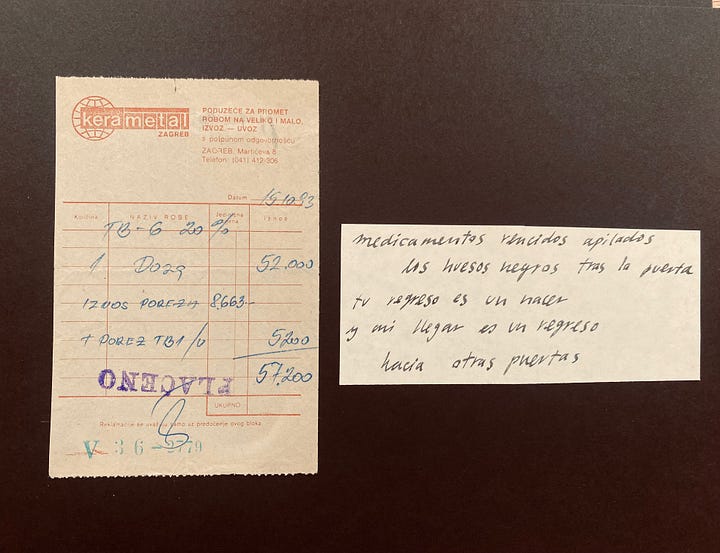 kerametal
ZAGREB
PODUZEĆE ZA PROMET
ROBOM NA VELIKO I MALO,
IZVOZ — UVOZ
s potpunom odgovornošću
ZAGREB, Martićeva 8
Telefon: (041) 412-306
Datum 15.10.93
Količina NAZIV ROBE Jedinična cijena Iznos
TB-6 20 %
1 Doza 52.000
IZNOS POREZA 8,663-
+ POREZ TB1/U 5200
57.200
PLAĆENO
UKUPNO
Reklamacije se uvažuju samo uz predočenje ovog bloka.
V 36-2779
medicamentos vencidos apilados
los huesos negros tras la puerta
tu regreso es un nacer
y mi llegar es un regreso
hacia otras puertas